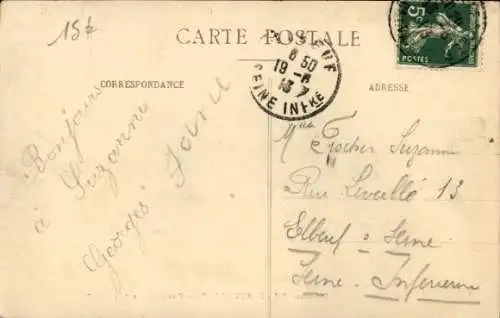 15
CARTE POSTALE
CORRESPONDANCE
ADRESSE
5
POSTES
ELBEUF
6 50
19 -8
13
SEINE INFRE
Bonjour
à Suzanne
Georges
Mlle Fischer Suzanne
Rue Léveillé 13
Elbeuf s Seine
Seine-Inférieure